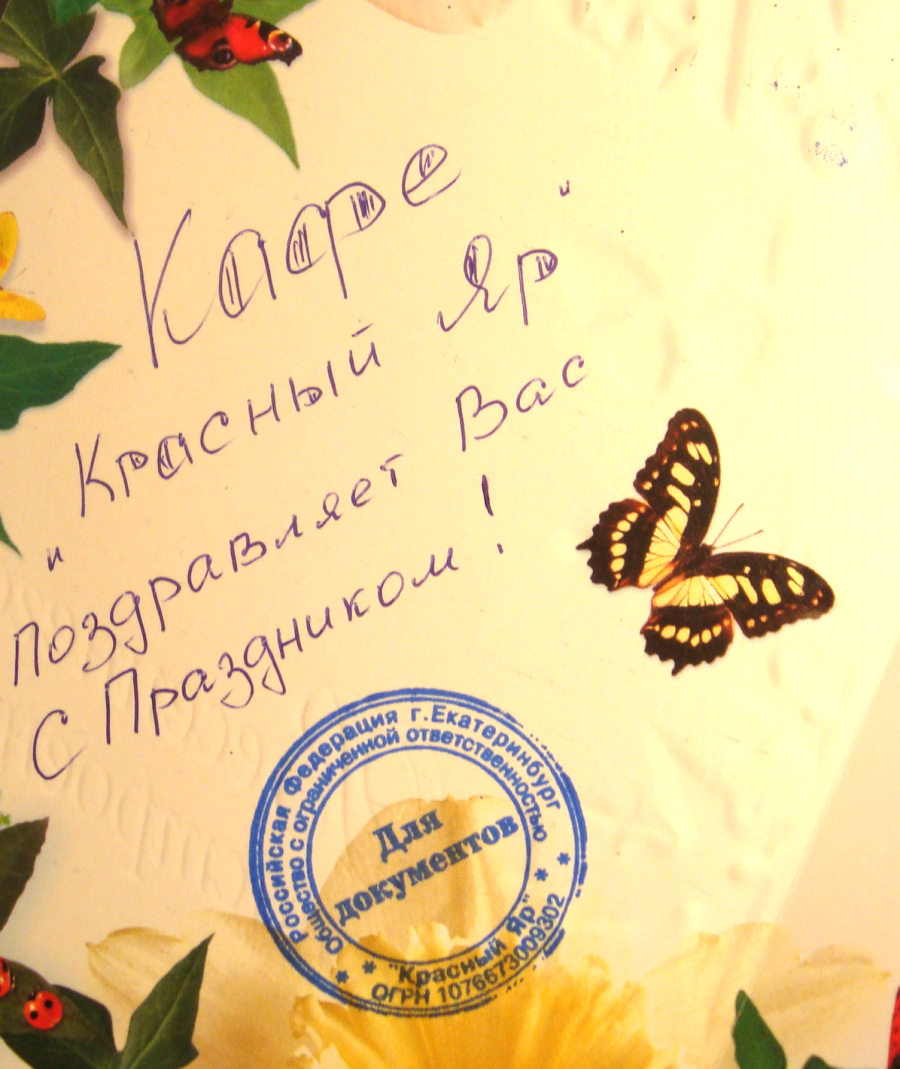 Кафе
"Красный Яр"
Поздравляет Вас
С Праздником!
Российская Федерация г.Екатеринбург
Общество с ограниченной ответственностью
Для
документов
* * "Красный Яр" * *
ОГРН 1076673009302